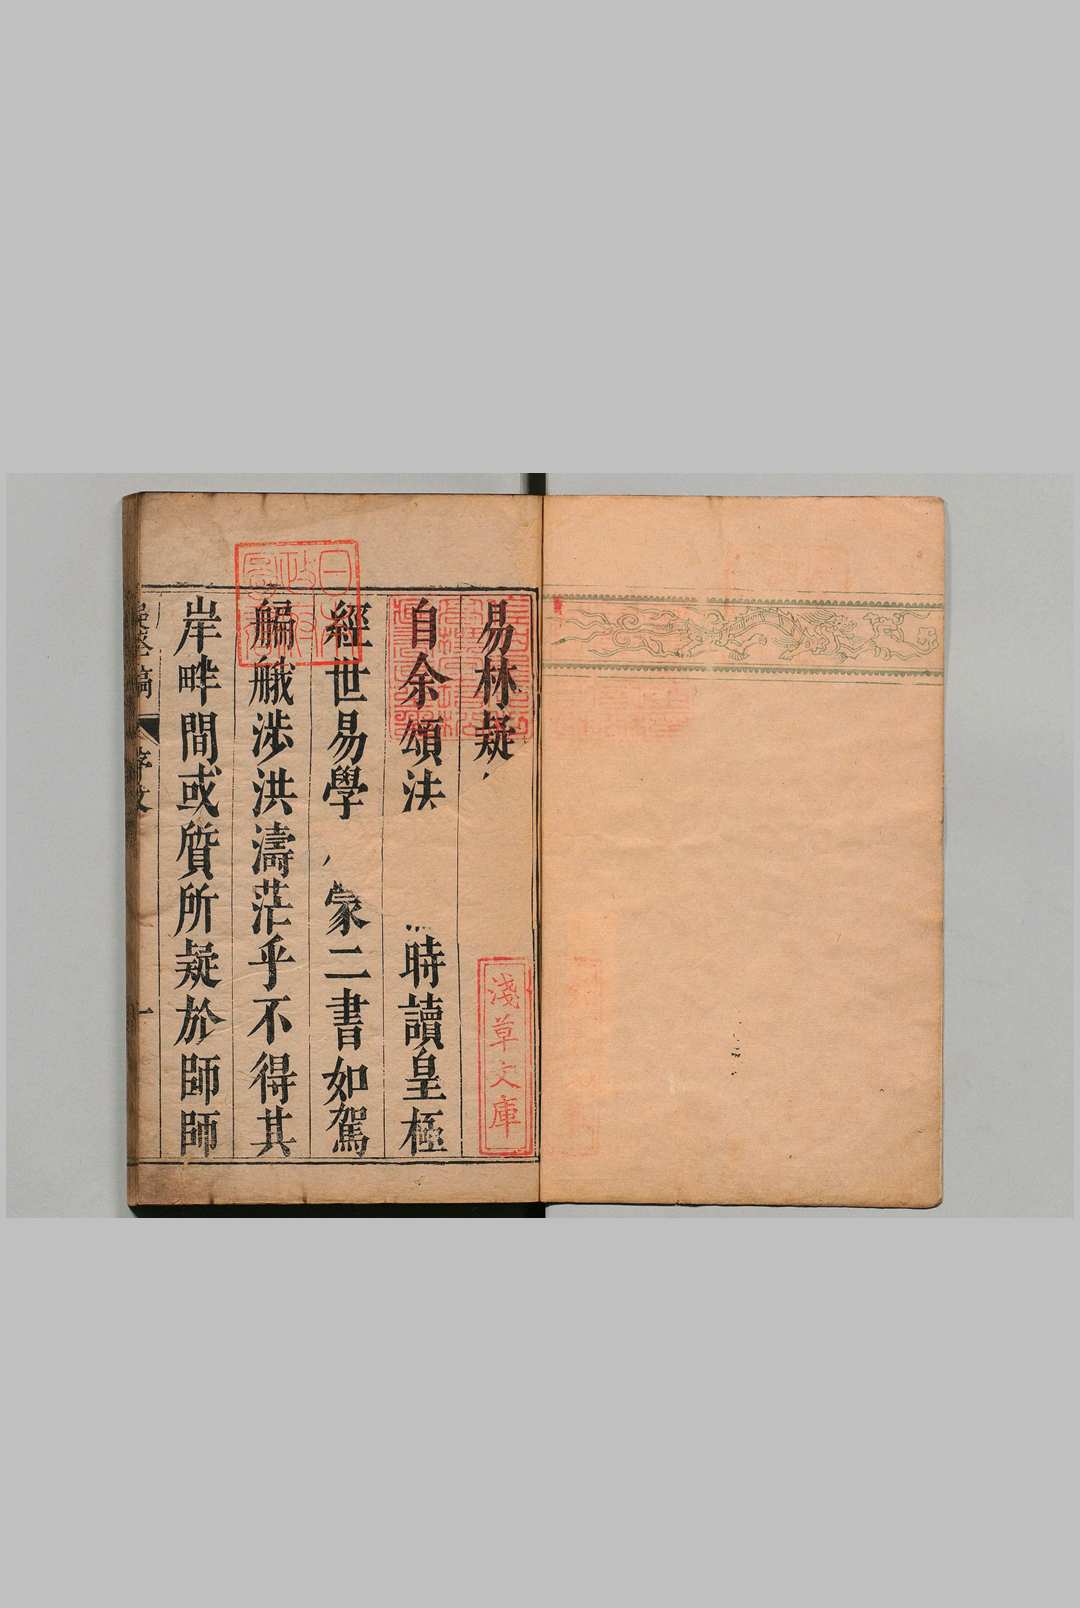 易林疑
自余頌法 時讀皇極
經世易學 蒙二書如駕
艑艖涉洪濤茫乎不得其
岸畔間或質所疑於師師
序文
一
淺草文庫